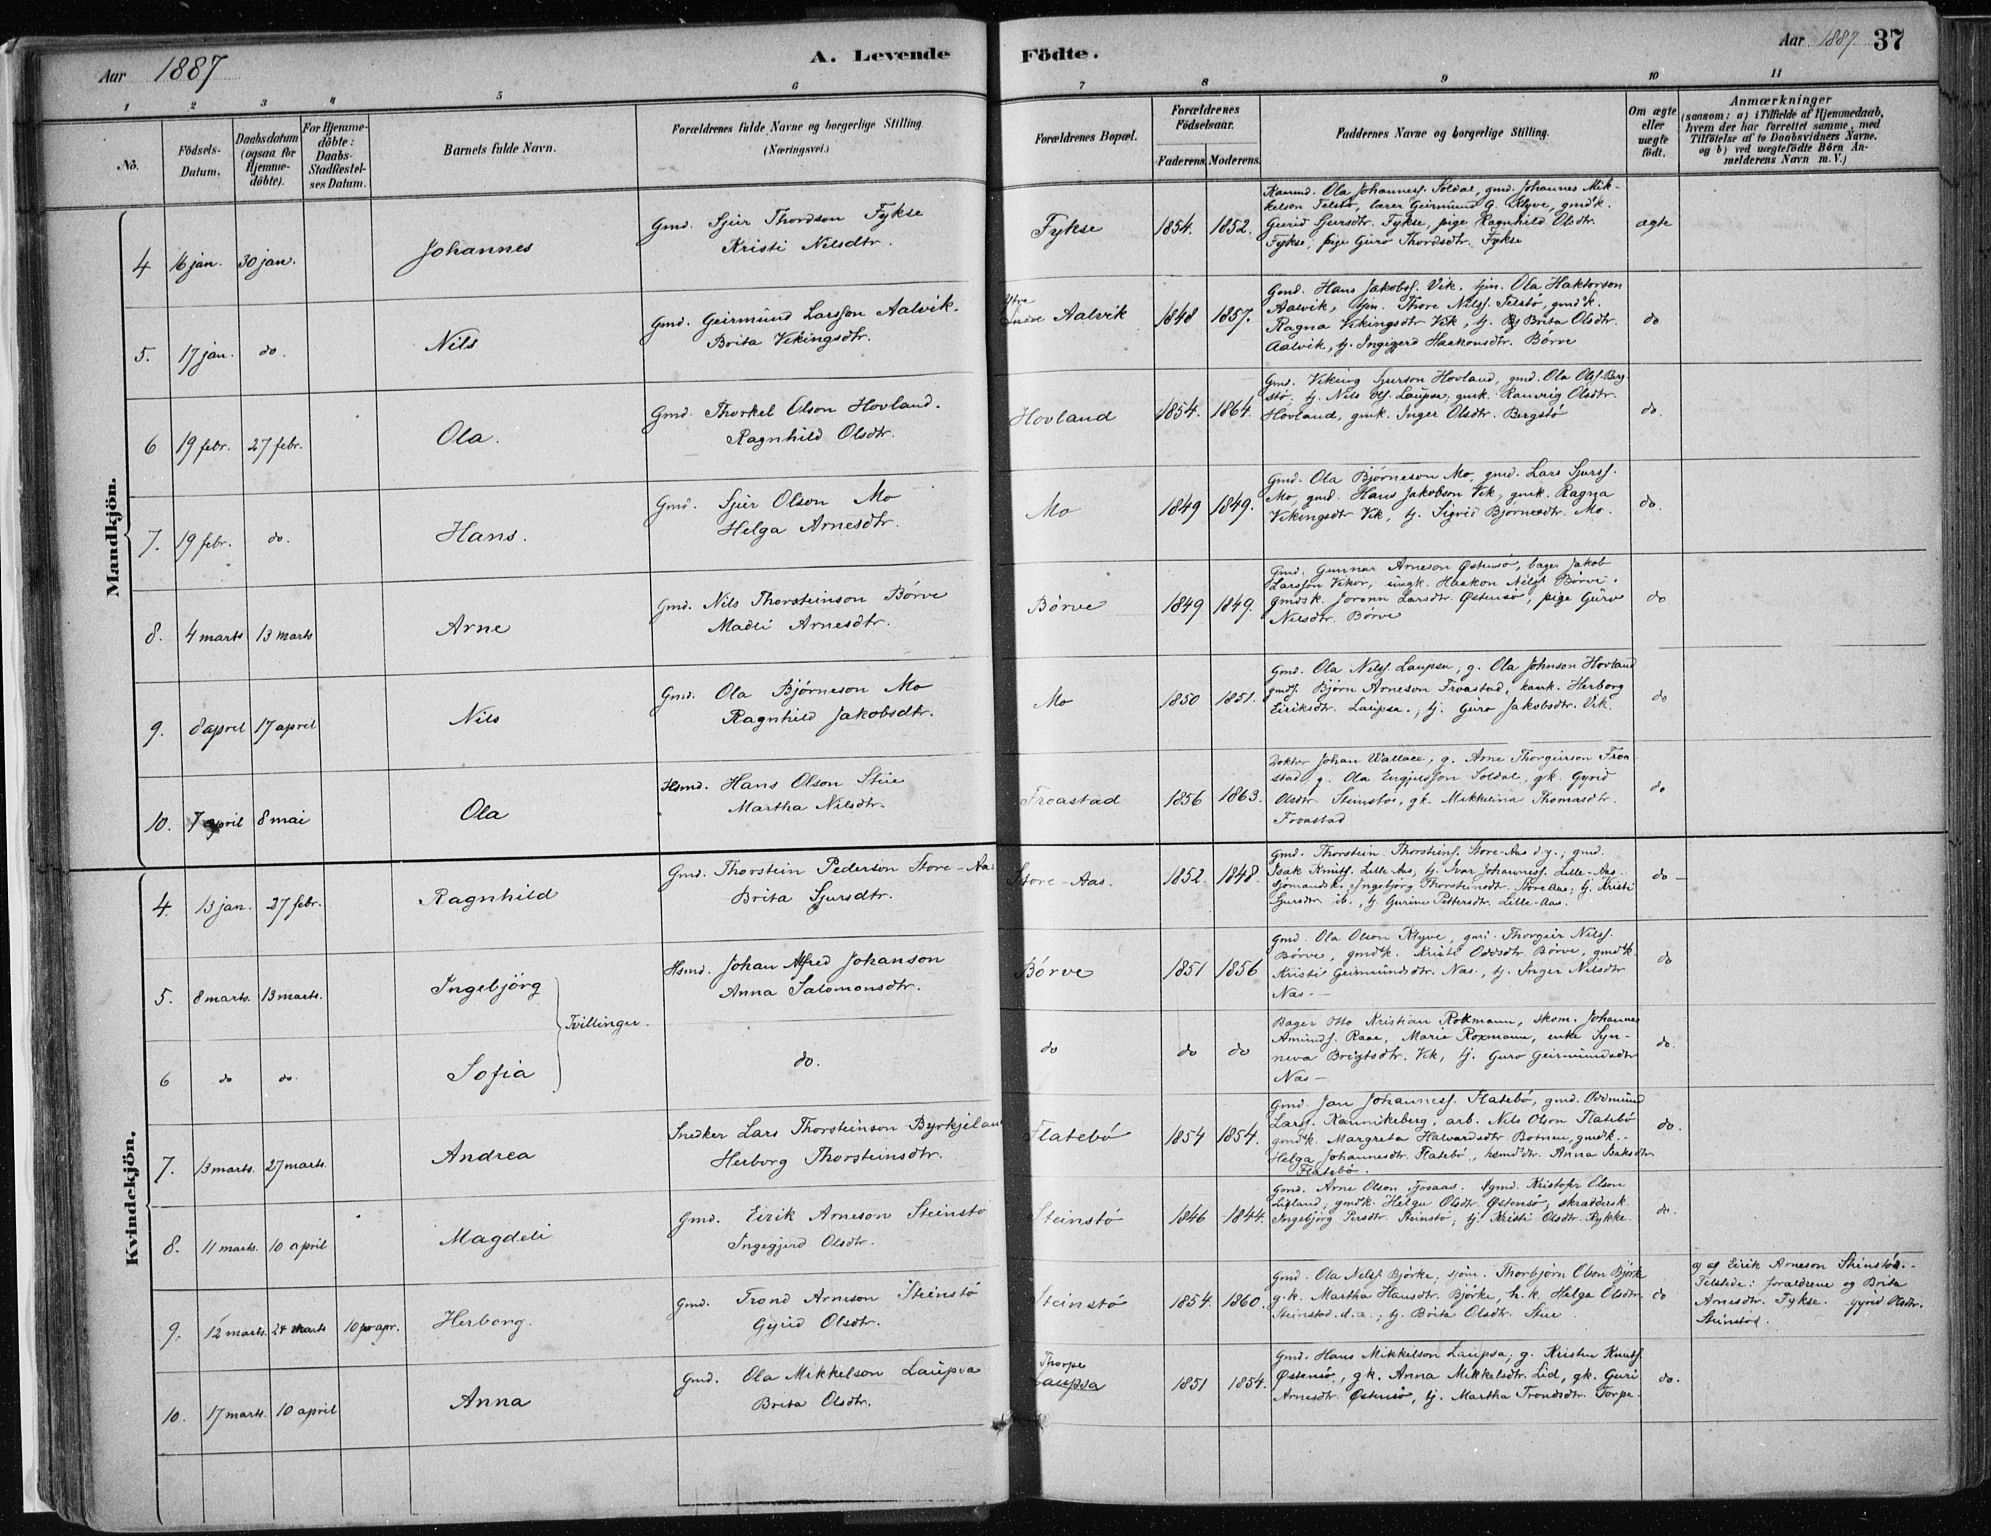 Aar 1887
A. Levende Födte.
Aar 1887 37
1 2 3 4 5 6 7 8 9 10 11
No.
Födsels-Datum.
Daabsdatum (ogsaa for Hjemme-döbte).
For Hjemme-döbte: Daabs-Stadfæstel-ses Datum.
Barnets fulde Navn.
Forældrenes fulde Navne og borgerlige Stilling.
(Næringsvei.)
Forældrenes Bopæl.
Forældrenes Födselsaar.
Faderens. Moderens.
Faddernes Navne og borgerlige Stilling.
Om ægte eller uægte født.
Anmærkninger
(saasom: a) i Tilfælde af Hjemmedaab,
hvem der har forrettet samme, med
Tilföielse af to Daabsvidners Navne.
og b) ved uægtefödte Börn An-
melderens Navn m. V.)
Mandkjön.
4 16 jan. 30 jan. Johannes
Gmd. Sjur Thordson Fykse
Kristi Nilsdtr.
Fykse 1854. 1852.
Kaarmd. Ola Johanness. Soldal, gmd. Johannes Mik-
kelson Telstø, lærer Geirmund G. Klyve, gmdk.
Gurid Sjursdtr. Fykse, pige Ragnhild Olsdtr.
Fykse, pige Guro Thordsdtr. Fykse
ægte
5. 17 jan. do. Nils
Gmd. Geirmund Larsson Aalvik.
Brita Vikingsdtr.
Ytre Aalvik 1848 1857.
Gmd. Hans Jakobs. Vik, tjm. Ola Haktorson
Aalvik, tjm. Thore Nilss. Telstø, gmdk.
Ragna Vikingsdtr Vik, tj. Brita Olsdtr.
Aalvik, tj. Ingigjerd Haakonsdtr. Børve
do
6 19 febr. 27 febr. Ola.
Gmd. Thorkel Olson Hovland.
Ragnhild Olsdtr.
Hovland 1854. 1864.
Gmd. Viking Sjurson Hovland, gmd. Ola Ols. Berg-
stø, tj. Nils Ols. Laupsa, gmk. Ranveig Olsdtr.
Hovland, gmk. Inger Olsdtr. Bergstø
do.
7. 19 febr. do. Hans.
Gmd. Sjur Olson Mo
Helga Arnesdtr.
Mo 1849 1849.
Gmd. Ola Bjørneson Mo, gmd. Lars Sjurss.
Mo, gmd. Hans Jakobson Vik, gmk. Ragna
Vikingsdtr Vik, tj. Sigrid Bjørnesdtr. Mo.
do.
8. 4 marts 13 marts Arne
Gmd. Nils Thorsteinson Børve
Madli Arnesdtr.
Børve 1849. 1849.
Gmd. Gunnar Arneson Østensø, bager Jakob
Larsson Vikør, ungk. Haakon Nilss. Børve.
gmdsk. Joronn Larsdtr. Østensø, pige Guro
Nilsdtr. Børve
do
9. 8 april 17 april Nils
Gmd. Ola Bjørneson Mo
Ragnhild Jakobsdtr.
Mo 1850 1851.
Gmd. Ola Nilss. Laupsa, g. Ola Johnson Hovland
gmds. Bjørn Arneson Froastad, kaark. Herborg
Eiriksdtr. Laupsa., tj. Guro Jakobsdtr. Vik.
do
10. 7 april 8 mai Ola
Hsmd. Hans Olson Stue
Martha Nilsdtr.
Froastad 1856 1863.
Doktor Johan Wallace, g. Arne Thorgeirson Froa-
stad, g. Ola Soldal, gk. Gyrid
Olsdtr Steinstø, gk. Mikkelina Thomasdtr.
Froastad
do
Kvindekjön.
4. 13 jan. 27 febr. Ragnhild
Gmd. Thorstein Pederson Store-Aas
Brita Sjursdtr.
Store-Aas. 1852. 1848.
Gmd. Thorstein Thorsteins. Store-Aas d.y.; gmd.
Isak Knuts. Lille Aas, tj. Ivar Johanness. Lille-Aas.
sjømandsk. Ingebjørg Thorsteinsdt. Store Aas; tj. Kristi
Sjursdtr ib., tj. Gurine Pettersdtr. Lille-Aas.
do
5. 8 marts. 13 marts. Ingebjörg
Tvillinger.
Hsmd. Johan Alfred Johanson
Anna Salomonsdtr.
Børve 1851 1856
Gmd. Ola Olson Klyve, gmd. Thorgeir Nilss.
Børve, gmdsk. Kristi Oddsdtr Børve, gmdk.
Kristi Geirmundsdtr. Nas., tj. Inger Nilsdtr
Nas.-
do
6 do do. Sofia
do.
do do do
Bager Otto Kristian Rokmann, skom. Johannes
Amunds. Raae, Marie Roxmann, enke Syn-
neva Brigtsdtr. Vik, tj. Guro Geirmundsdtr
Nas-
do.
7. 13 marts. 27 marts. Andrea
Snedker Lars Thorsteinson Byrkjeland
Herborg Thorsteinsdtr.
Flatebø 1854 1854.
Gmd. Jan Johanness. Flatebø, gmd. Oddmund
Larss. Kannikeberg, arb. Nils Olson Flatebø
gmdk. Margreta Halvardsdtr Botnen, gmdk.
Helga Johannesdtr. Flatebø, hsmd'dtr. Anna
Flatebø.
do.
8. 11 marts. 10 april Magdeli
Gmd. Eirik Arneson Steinstø
Ingigjerd Olsdtr.
Steinstø 1846 1844.
Gmd. Arne Olson Tjosaas. gmd. Kristofer Olson
gmdk. Helga Olsdtr. Østensø, skrædderk
Ingebjörg Persdtr. Steinstø; tj. Kristi Olsdtr. Rykke.
do.
9. 12 marts. 24 marts 10 apr. Herborg.
Gmd. Trond Arneson Steinstø
Gyrid Olsdtr.
Steinstø 1854. 1860.
Gmd. Ola Nilss. Björke, sjöm. Thorbjørn Olson Björke
g.k. Martha Hansdtr. Björke, h.k. Helga Olsdtr.
Steinstød. d.æ.; tj. Brita Olsdtr. Stue
do
a) af Eirik Arneson Steinstø.
Tilstede: forældrene og Brita
Arnesdtr. Fykse. Gyrid Olsdtr.
Steinstød.
10. 17 marts. 10 april Anna
Gmd. Ola Mikkelson Laupsa
Brita Olsdtr.
Thorpe
Laupsa 1851 1854.
Gmd. Hans Mikkelson Laupsa; g. Kristen Knuts.
Østensø, gk. Anna Mikkelsdtr. Lid, gk. Guri
Arnesdtr. Østensø, tj. Martha Trondsdtr. Torpe.
do.